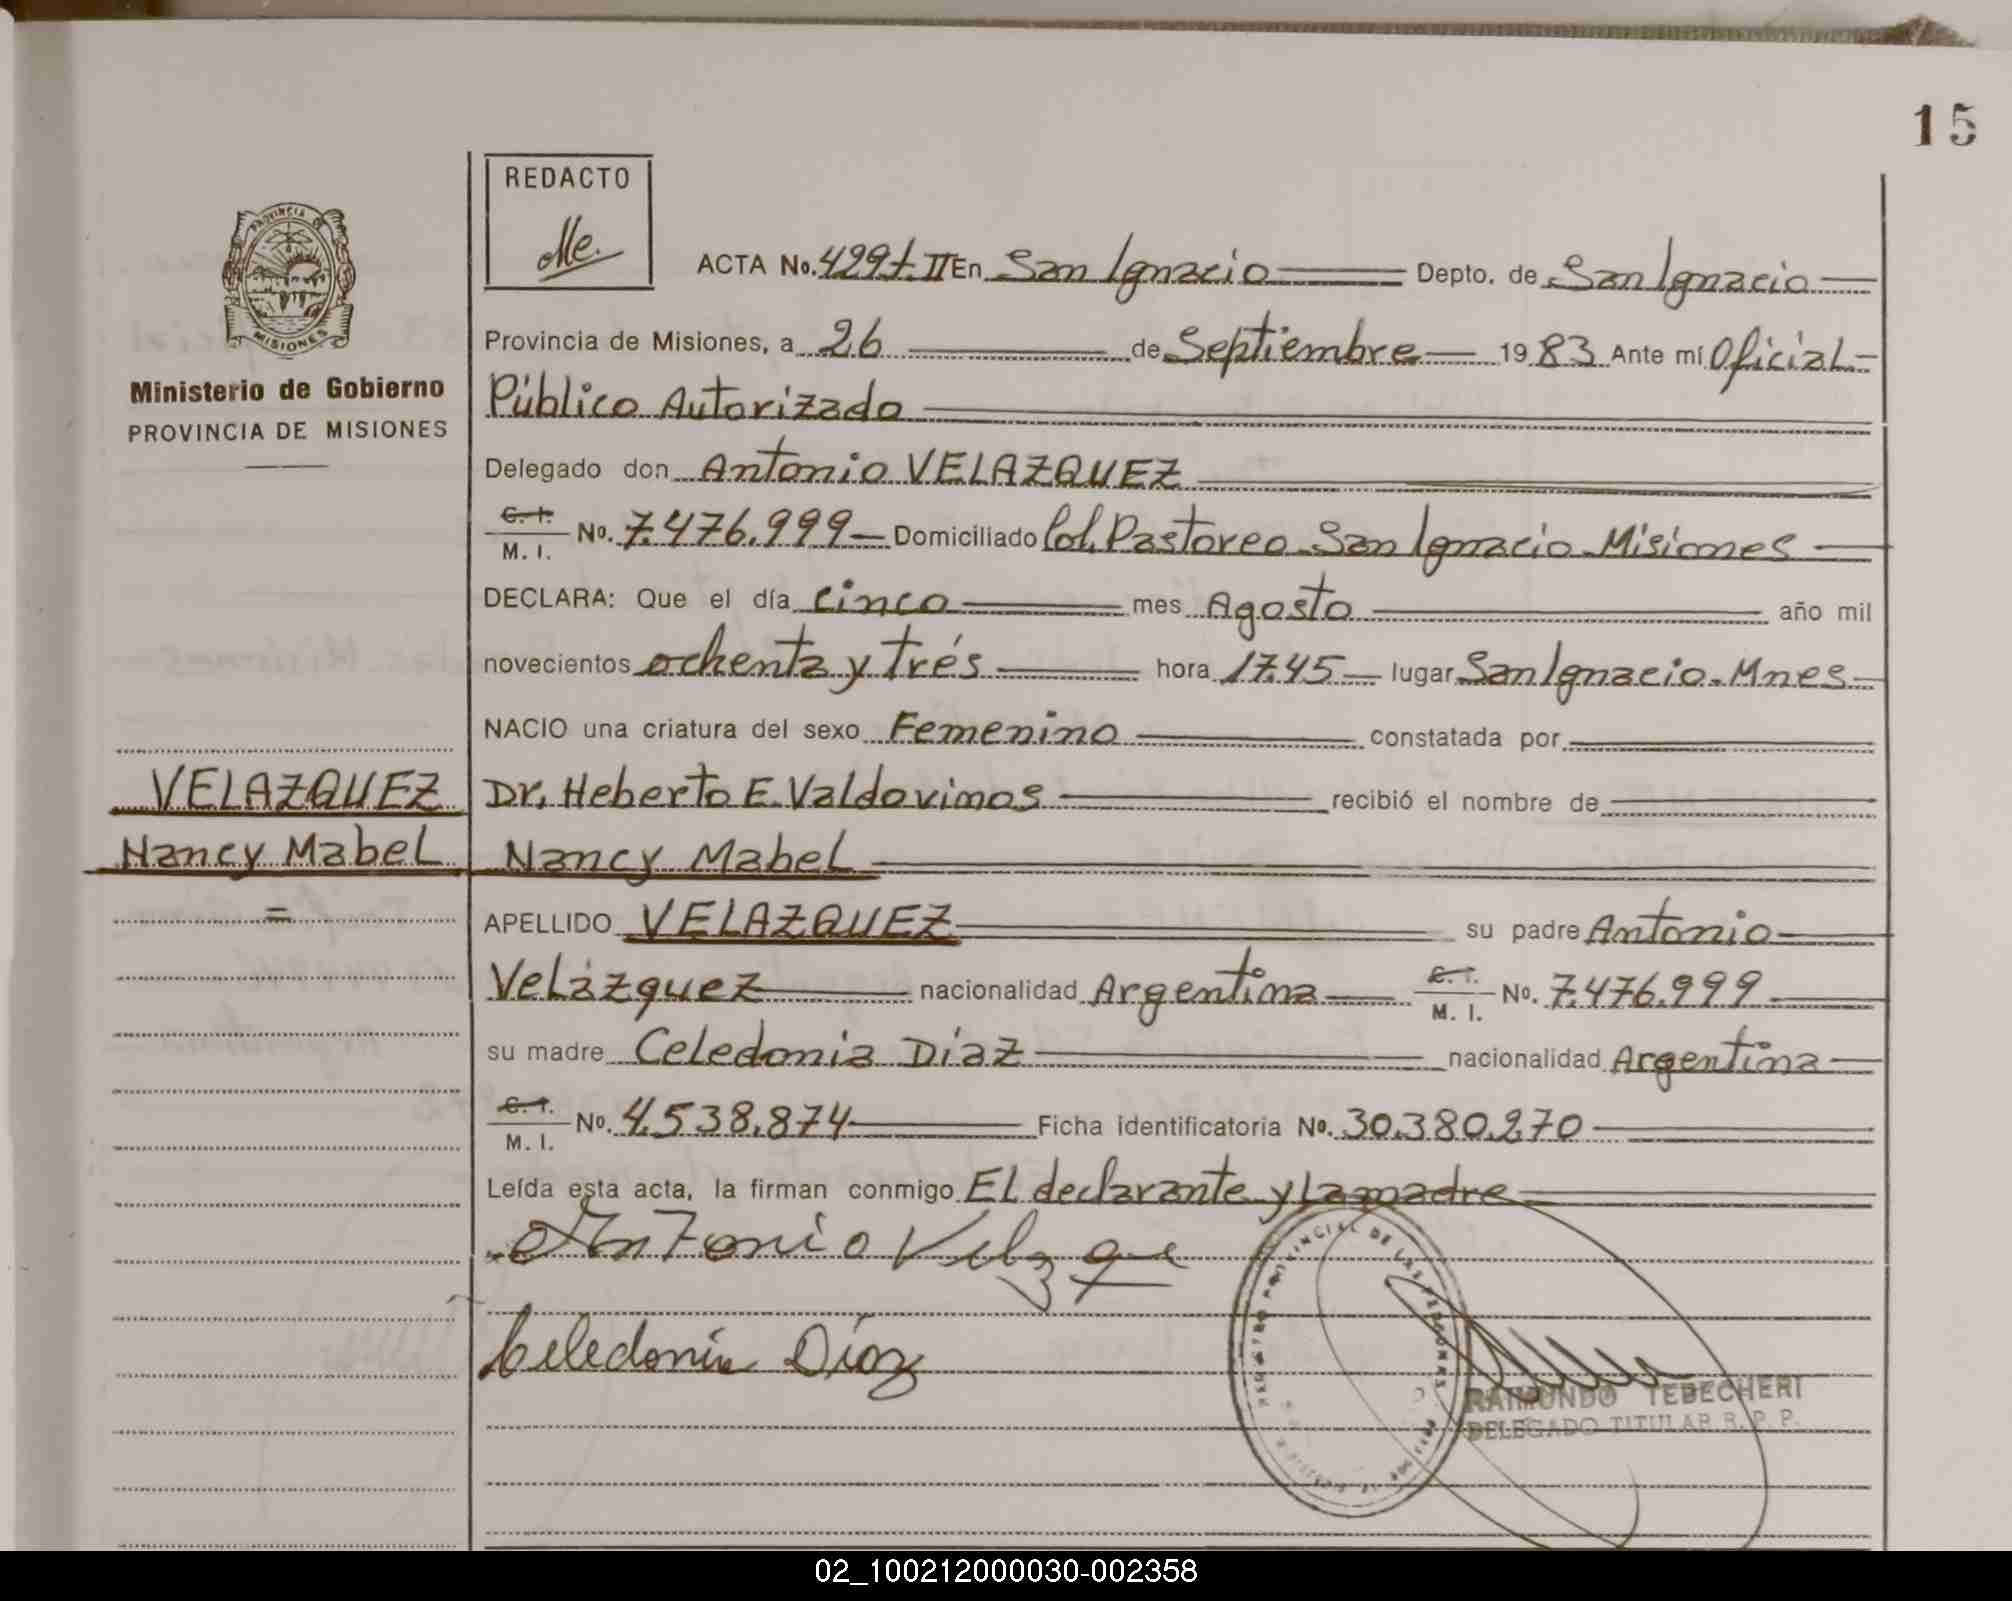 15
REDACTO
Me.
PROVINCIA DE
MISIONES
Ministerio de Gobierno
PROVINCIA DE MISIONES
ACTA No. 429 t. II En San Ignacio Depto. de San Ignacio
Provincia de Misiones, a 26 de Septiembre 1983 Ante mí Oficial
Público Autorizado
Delegado don Antonio VELAZQUEZ
C. I. / M. I. No. 7.476.999 Domiciliado Col. Pastoreo San Ignacio Misiones
DECLARA: Que el día cinco mes Agosto año mil
novecientos ochenta y trés hora 17.45 lugar San Ignacio - Mnes
NACIO una criatura del sexo Femenino constatada por
Dr. Heberto E. Valdovinos recibió el nombre de
VELAZQUEZ
Nancy Mabel
=
Nancy Mabel
APELLIDO VELAZQUEZ su padre Antonio
Velázquez nacionalidad Argentina C. I. / M. I. No. 7.476.999
su madre Celedonia Díaz nacionalidad Argentina
C. I. / M. I. No. 4.538.874 Ficha identificatoria No. 30.380.270
Leída esta acta, la firman conmigo El declarante y La madre
Antonio Velzque
Celedonia Díaz
PROVINCIAL DE LAS PERSONAS
RAIMUNDO TEBECHERI
DELEGADO TITULAR R. P. P.
02_100212000030-002358